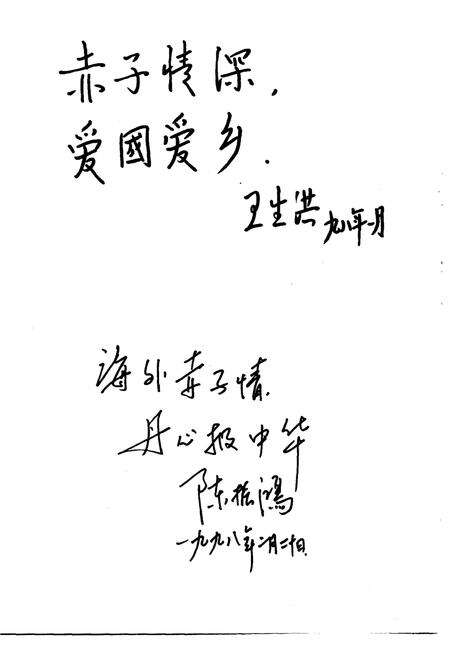 赤子情深，
爱國爱乡．
王生洪 九八年一月
海外赤子情
丹心报中华
陈振鴻
一九九八年二月二十日